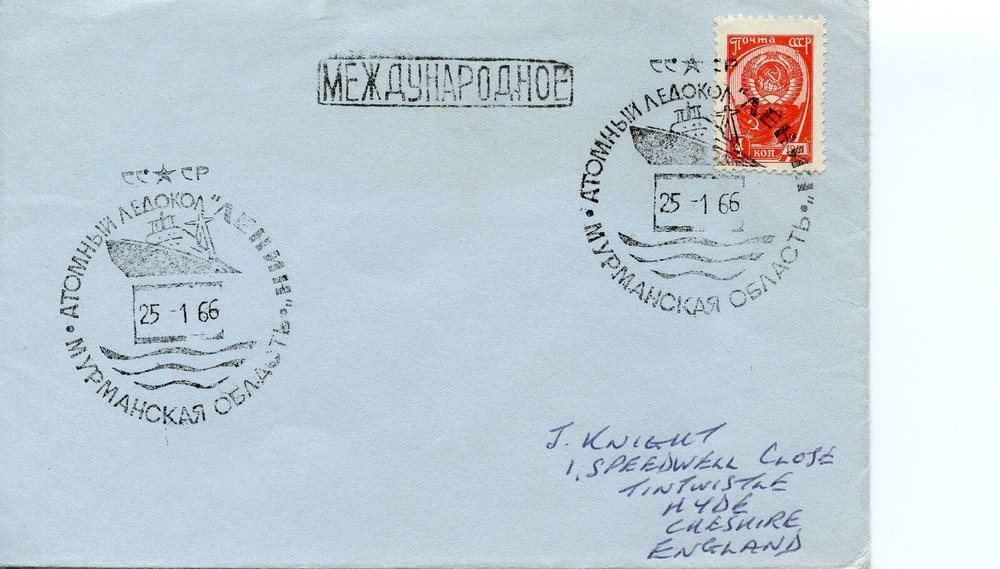 Почта СССР
4 КОП. 1961
МЕЖДУНАРОДНОЕ
СССР
АТОМНЫЙ ЛЕДОКОЛ "ЛЕНИН"
25 -1 66
• МУРМАНСКАЯ ОБЛАСТЬ •
СССР
АТОМНЫЙ ЛЕДОКОЛ "ЛЕНИН"
25 -1 66
• МУРМАНСКАЯ ОБЛАСТЬ •
J. KNIGHT
1, SPEEDWELL CLOSE
TINTWISTLE
HYDE
CHESHIRE
ENGLAND